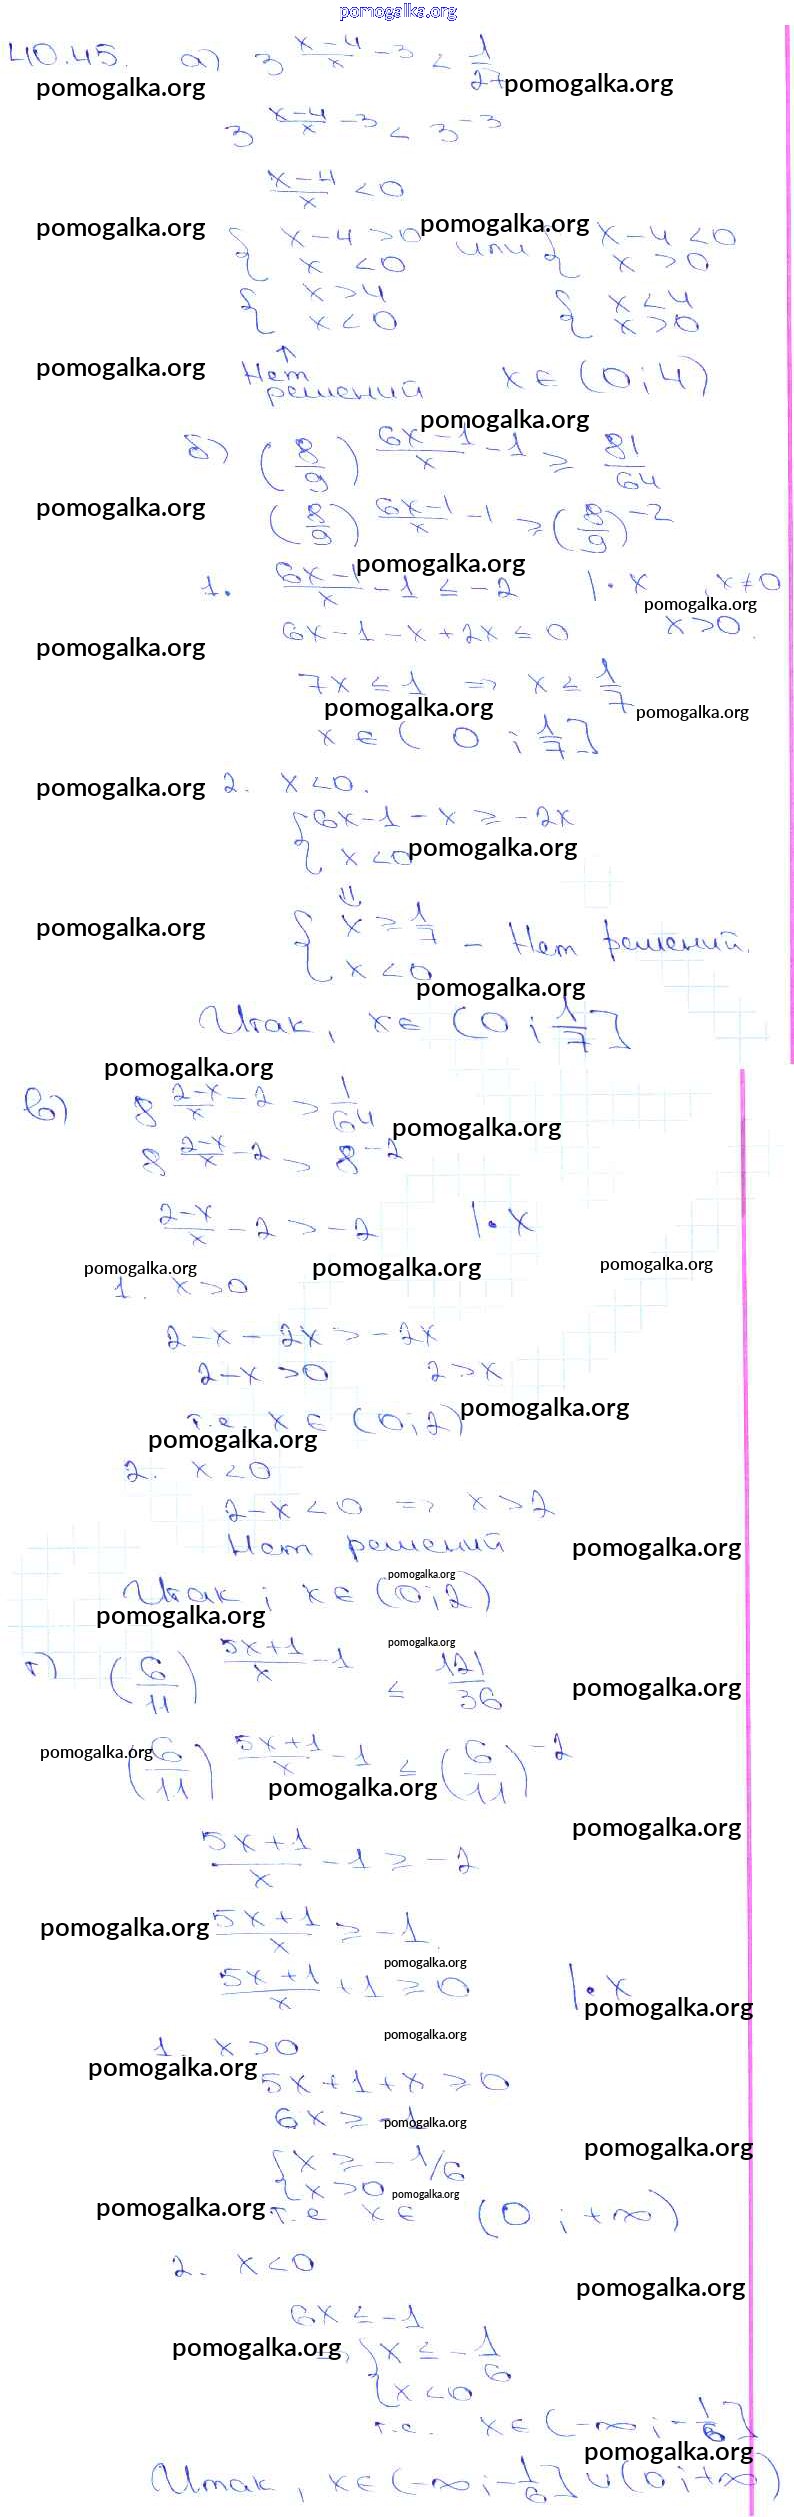 pomogalka.org
40.45. а) 3^((x-4)/x - 3) < 1/27
pomogalka.org pomogalka.org
3^((x-4)/x - 3) < 3^(-3)
(x-4)/x < 0
pomogalka.org pomogalka.org
{ x-4 > 0 или { x-4 < 0
x < 0 x > 0
{ x > 4 { x < 4
x < 0 x > 0
↑
pomogalka.org
Нет x ∈ (0; 4)
решений
pomogalka.org
б) (8/9)^((6x-1)/x - 1) ≥ 81/64
pomogalka.org
(8/9)^((6x-1)/x - 1) ≥ (8/9)^(-2)
pomogalka.org
1. (6x-1)/x - 1 ≤ -2 | · x , x ≠ 0
pomogalka.org
6x - 1 - x + 2x ≤ 0 x > 0.
pomogalka.org
7x ≤ 1 => x ≤ 1/7
pomogalka.org pomogalka.org
x ∈ ( 0 ; 1/7]
pomogalka.org
2. x < 0.
{ 6x - 1 - x ≥ -2x
x < 0
pomogalka.org
⇓
pomogalka.org
{ x ≥ 1/7 - Нет решений.
x < 0
pomogalka.org
Итак, x ∈ (0 ; 1/7]
pomogalka.org
в) 8^((2-x)/x - 2) > 1/64
pomogalka.org
8^((2-x)/x - 2) > 8^(-2)
(2-x)/x - 2 > -2 | · x
pomogalka.org pomogalka.org pomogalka.org
1. x > 0
2 - x - 2x > -2x
2 - x > 0 2 > x
pomogalka.org
т.е. x ∈ (0; 2)
pomogalka.org
2. x < 0
2 - x < 0 => x > 2
Нет решений
pomogalka.org
pomogalka.org
Итак, x ∈ (0; 2)
pomogalka.org
pomogalka.org
г) (6/11)^((5x+1)/x - 1) ≤ 121/36
pomogalka.org
pomogalka.org
(6/11)^((5x+1)/x - 1) ≤ (6/11)^(-2)
pomogalka.org
pomogalka.org
(5x+1)/x - 1 ≥ -2
pomogalka.org
(5x+1)/x ≥ -1
pomogalka.org
(5x+1)/x + 1 ≥ 0 | · x
pomogalka.org
pomogalka.org
1. x > 0
pomogalka.org
5x + 1 + x ≥ 0
6x ≥ -1
pomogalka.org
pomogalka.org
{ x ≥ -1/6
x > 0
pomogalka.org
pomogalka.org
т.е x ∈ (0 ; +∞)
2. x < 0
pomogalka.org
6x ≤ -1
pomogalka.org
=> { x ≤ -1/6
x < 0
т.е. x ∈ (-∞ ; -1/6]
pomogalka.org
Итак, x ∈ (-∞ ; -1/6] ∪ (0 ; +∞)